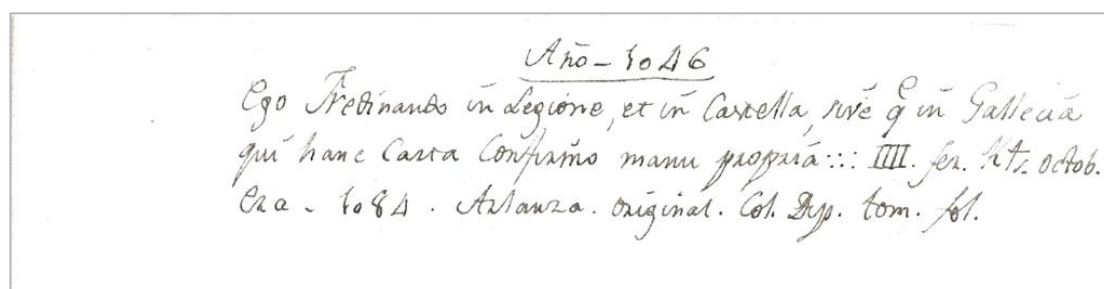 Año - 1046
Ego Fredinando in Legione, et in Castella, sive q̄ in Gallecia
qui hanc Carta Confirmo manu propria ::: IIII. fer. Kts. octob.
Era - 1084. Arlanza. original. Col. Dip. tom. fol.